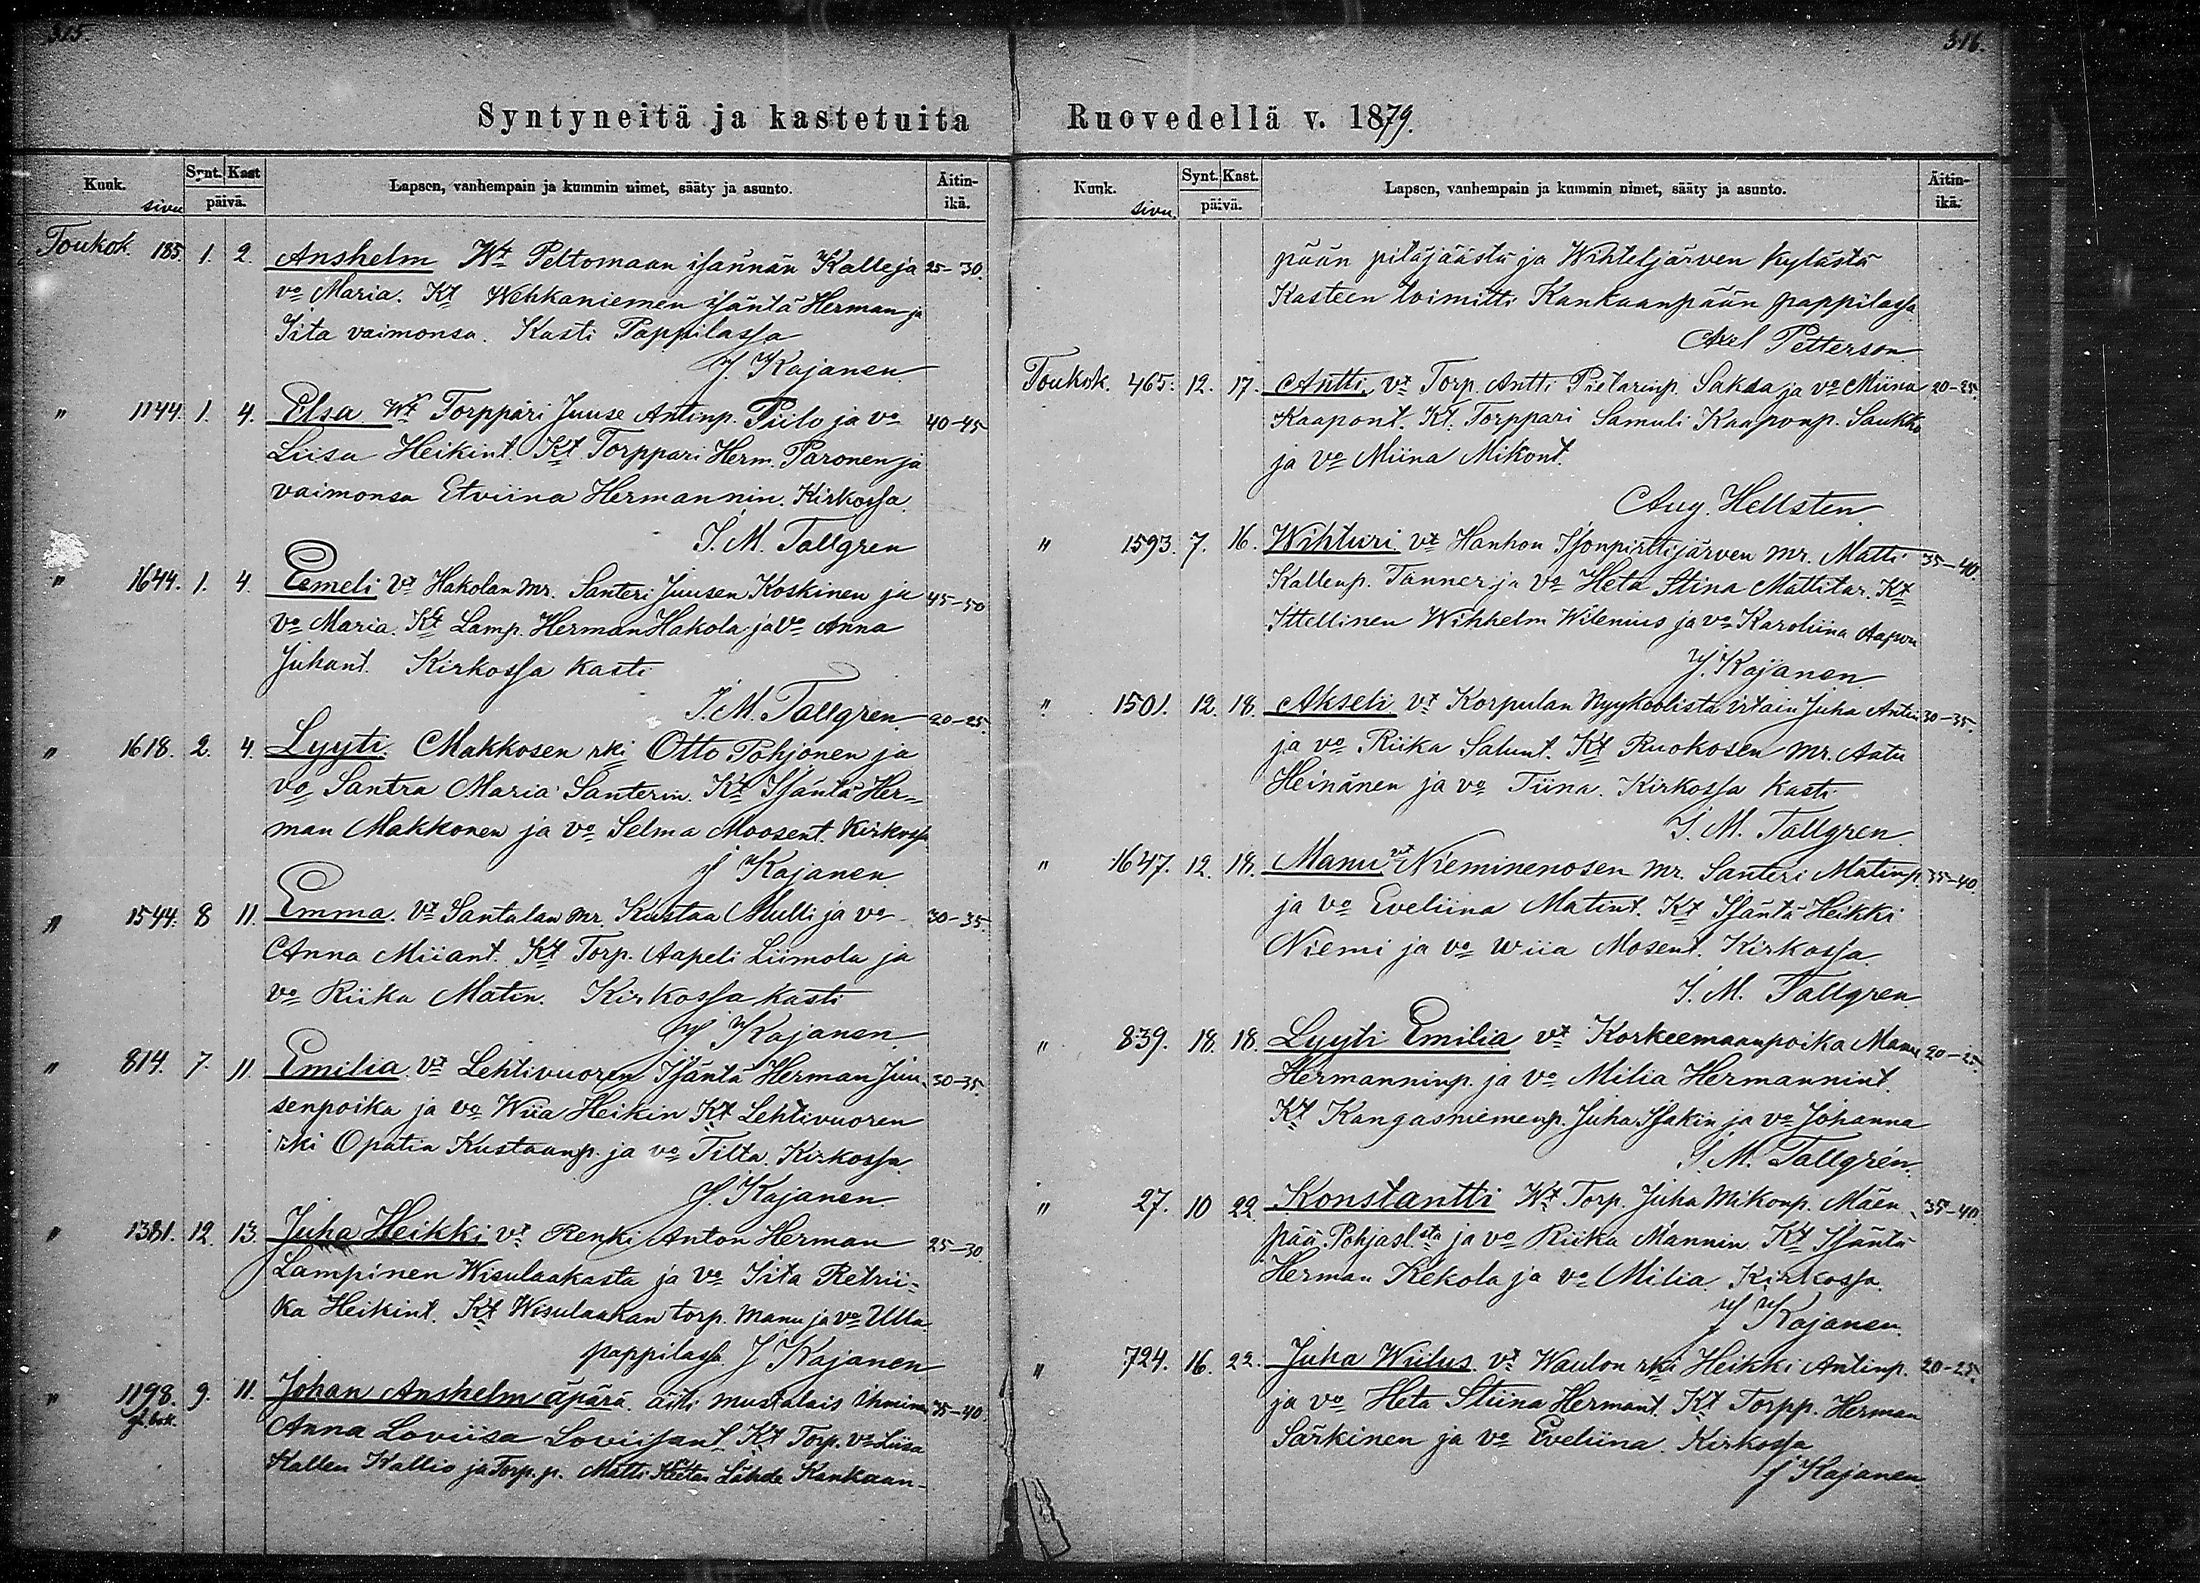 315.
Syntyneitä ja kastetuita
Kuuk. sivu
Synt. Kast
päivä.
Lapsen, vanhempain ja kummin nimet, sääty ja asunto.
Äitin-
ikä.
Toukok. 185. 1. 2. Anshelm Wt Peltomaan isännän Kalle ja 25-30.
vo Maria. Kt Wehkaniemen isäntä Herman ja
Iita vaimonsa. Kasti Pappilassa
J. Kajanen
" 1144. 1. 4. Elsa Wt Torppari Juuse Antinp. Piilo ja vo 40-45
Liisa Heikint. Kt Torppari Herm. Paronen ja
vaimonsa Etviina Hermannin. Kirkossa.
I. M. Tallgren
" 1644. 1. 4. Eemeli Vt Hakolan mr. Santeri Juusen Koskinen ja 45-50
Vo Maria. Kt Lamp. Herman Hakola ja Vo Anna
Juhant. Kirkossa kasti
I. M. Tallgren
" 1618. 2. 4. Lyyti. Makkosen rki Otto Pohjonen ja 20-25.
vo Santra Maria Santerin. Kt Isäntä Her-
man Makkonen ja vo Selma Moosent. Kirkossa
J Kajanen
" 1544. 8 11. Emma. Vt Santalan mr. Kustaa Mulli ja vo 30-35.
Anna Miiant. Kt Torp. Aapeli Liimola ja
vo Riika Matin. Kirkossa kasti
J Kajanen
" 814. 7. 11. Emilia. Vt Lehtivuoren Isäntä Herman Juu- 30-35.
senpoika ja vo Wiia Heikin Kt Lehtivuoren
rki Opatia Kustaanp. ja vo Tilta. Kirkossa.
J. Kajanen.
" 1381. 12. 13. Juha Heikki vt Renki Anton Herman 25-30.
Lampinen Wisulaakasta ja vo Iita Retrii-
ka Heikint. Kt Wisulaakan torp. Manu ja vo Ulla.
pappilassa J Kajanen
" 1198. 9. 11. Johan Anshelm äpärä. äiti mustalais ihminen 35-40.
Anna Loviisa Loviisant. Kt Torp. vo Liisa
Kallen Kallio ja Torp. p. Matti Lähde Kankaan-
316.
Ruovedellä v. 1879.
Kuuk. sivu.
Synt. Kast.
päivä.
Lapsen, vanhempain ja kummin nimet, sääty ja asunto.
Äitin-
ikä.
pään pitäjäästä ja Wihteljärven kylästä
Kasteen toimitti Kankaanpään pappilassa
Axel Petterson
Toukok. 465. 12. 17. Antti. vt Torp. Antti Pietarinp. Sakda ja vo Miina 20-25.
Kaapont. Kt. Torppari Samuli Kaaponp. Saukko
ja vo Miina Mikont.
Aug. Hellsten
" 1593. 7. 16. Wihturi vt Hanhon Isonpirttijärven mr. Matti 35-40.
Kallenp. Tanner ja vo Heta Stina Mattitar. Kt
Ittellinen Wihhelm Wilenius ja vo Karoliina Aapon
J. Kajanen.
" 1501. 12. 18. Akseli vt Korpulan Nyykoolista irtain Juha Antin 30-35.
ja vo Riika Salunt. Kt Ruokosen mr. Aatu
Heinänen ja vo Tiina. Kirkossa kasti
I. M. Tallgren
" 1647. 12. 18. Manu vt Nieminenosen mr. Santeri Matinp. 35-40
ja vo Eveliina Matint. Kt Isäntä Heikki
Niemi ja vo Wiia Mosent. Kirkossa.
I. M. Tallgren.
" 839. 18. 18. Lyyti Emilia vt Korkeemaanpoika Manu 20-25.
Hermanninp. ja vo Milia Hermannint.
Kt Kangasniemenp. Juha Isakin ja vo Johanna
I. M. Tallgrén.
" 27. 10 22. Konstantti Wt Torp. Juha Mikonp. Mäen- 35-40.
pää. Pohjasl.sta ja vo Riika Mannin. Kt Isäntä
Herman Kekola ja vo Milia. Kirkossa.
J Kajanen.
" 724. 16. 22. Juha Wiilus. vt Waulon rki Heikki Antinp. 20-25.
ja vo Heta Stiina Hermant. Kt Torpp. Herman
Särkinen ja vo Eveliina. Kirkossa
J Kajanen.